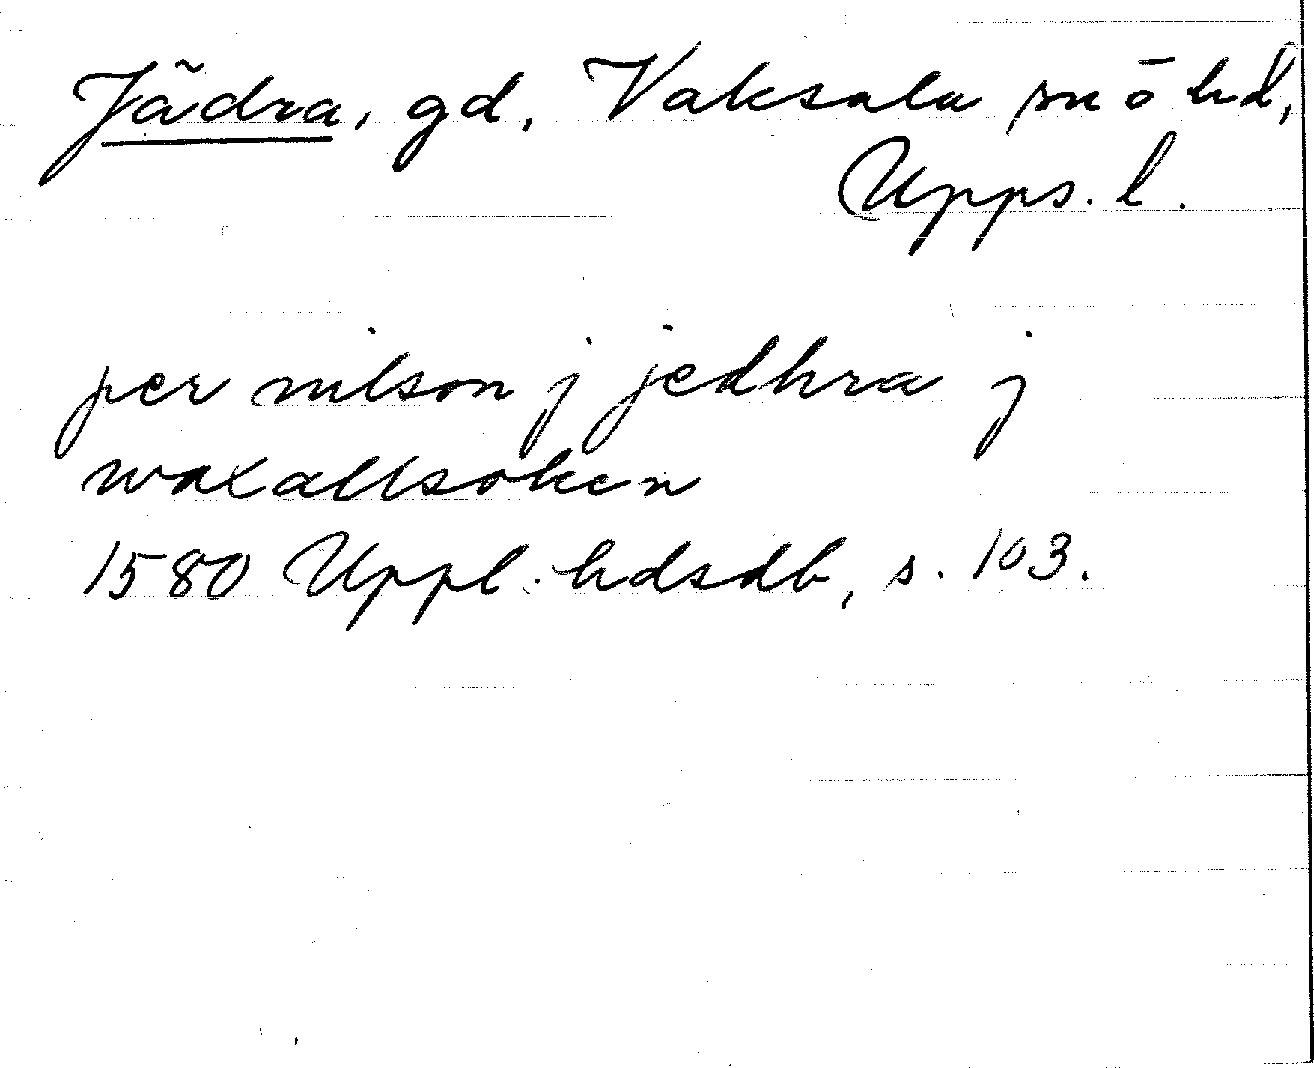 Jädra, gd, Vaksala sn ō hd,
Upps. l.
per nilson j jedhra j
waxallsoken
1580 Uppl. hdsdb, s. 103.